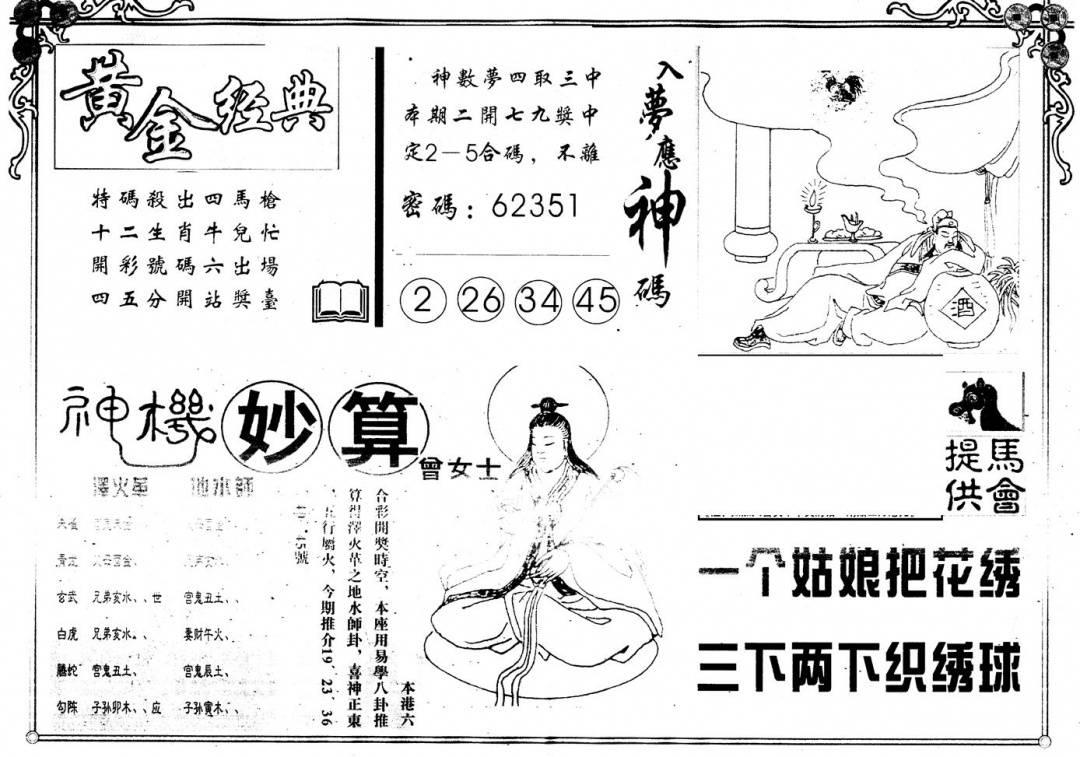 黃金經典
特碼殺出四馬槍
十二生肖牛兒忙
開彩號碼六出場
四五分開站獎臺
神數夢四取三中
本期二開七九獎中
定2－5合碼，不離
密碼：62351
2 26 34 45
入夢應神碼
酒
神機妙算
曾女士
澤火革 地水師
玄武 兄弟亥水、、世 官鬼丑土、、
白虎 兄弟亥水、、 妻財午火、
螣蛇 官鬼丑土、 官鬼辰土、
勾陈 子孙卯木、、应 子孙寅木、、
本港六
合彩開獎時空，本座用易學八卦推
算得澤火革之地水師卦，喜神正東
，五行屬火，今期推介19、23、36
45號
馬會
提供
一个姑娘把花绣
三下两下织绣球